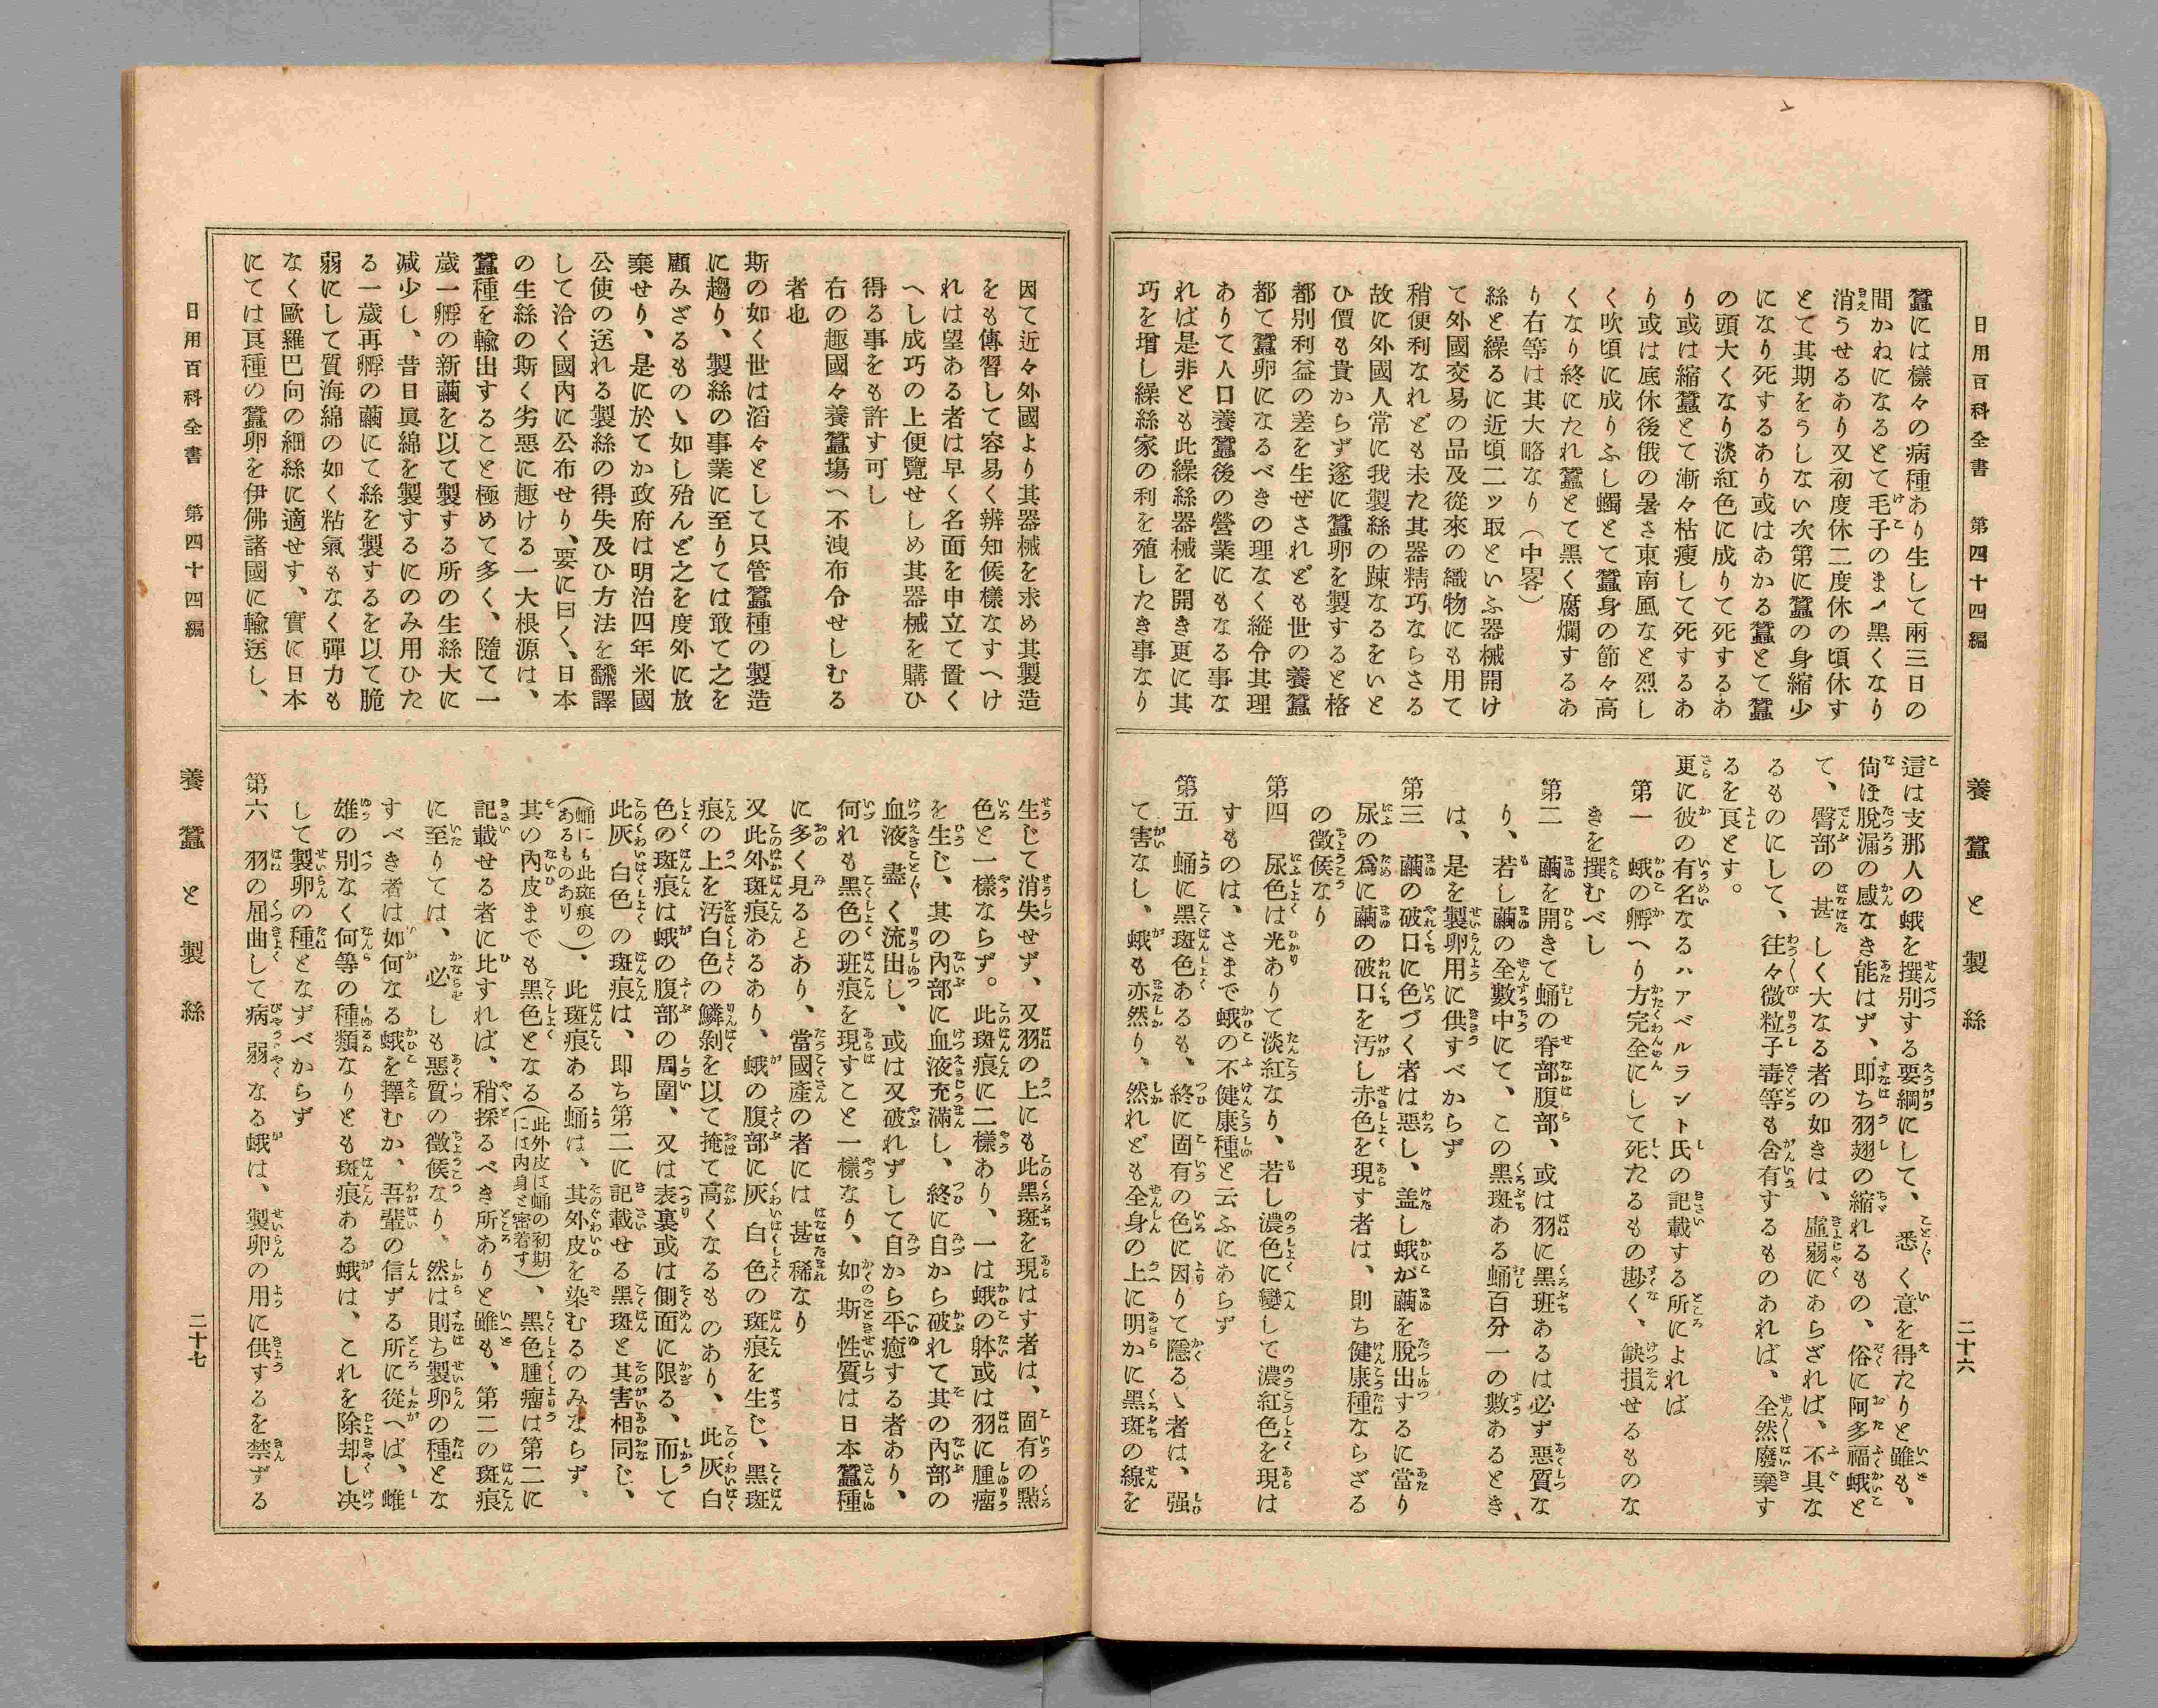 日用百科全書　第四十四編
養蠶と製絲
二十六
蠶には樣々の病種あり生して兩三日の
間かねになるとて毛子のまゝ黑くなり
消うせるあり又初度休二度休の頃休す
とて其期をうしない次第に蠶の身縮少
になり死するあり或はあかる蠶とて蠶
の頭大くなり淡紅色に成りて死するあ
り或は縮蠶とて漸々枯痩して死するあ
り或は底休後俄の暑さ東南風なと烈し
く吹頃に成りふし蠋とて蠶身の節々高
くなり終にたれ蠶とて黑く腐爛するあ
り右等は其大略なり（中畧）
絲と繰るに近頃二ッ取といふ器械開け
て外國交易の品及從來の織物にも用て
稍便利なれども未た其器精巧ならさる
故に外國人常に我製絲の踈なるをいと
ひ價も貴からず遂に蠶卵を製すると格
都別利益の差を生ぜされども世の養蠶
都て蠶卵になるべきの理なく縱令其理
ありて人口養蠶後の營業にもなる事な
れば是非とも此繰絲器械を開き更に其
巧を增し繰絲家の利を殖したき事なり
這は支那人の蛾を撰別する要綱にして、悉く意を得たりと雖も、
尙ほ脫漏の感なき能はず、即ち羽翅の縮れるもの、俗に阿多福蛾と
て、臀部の甚しく大なる者の如きは、虛弱にあらざれば、不具な
るものにして、往々微粒子毒等も含有するものあれば、全然廢棄す
るを良とす。
更に彼の有名なるハアベルラント氏の記載する所によれば
第一　蛾の孵へり方完全にして死たるもの尠く、缺損せるものな
きを撰むべし
第二　繭を開きて蛹の脊部腹部、或は羽に黑班あるは必ず惡質な
り、若し繭の全數中にて、この黑斑ある蛹百分一の數あるとき
は、是を製卵用に供すべからず
第三　繭の破口に色づく者は惡し、盖し蛾が繭を脫出するに當り
尿の爲に繭の破口を汚し赤色を現す者は、則ち健康種ならざる
の徵候なり
第四　尿色は光ありて淡紅なり、若し濃色に變して濃紅色を現は
すものは、さまで蛾の不健康種と云ふにあらず
第五　蛹に黑斑色あるも、終に固有の色に因りて隱るゝ者は、强
て害なし、蛾も亦然り、然れども全身の上に明かに黑斑の線を
因て近々外國より其器械を求め其製造
をも傳習して容易く辨知候樣なすへけ
れは望ある者は早く名面を申立て置く
へし成巧の上便覽せしめ其器械を購ひ
得る事をも許す可し
右の趣國々養蠶塲へ不洩布令せしむる
者也
斯の如く世は滔々として只管蠶種の製造
に趨り、製絲の事業に至りては敢て之を
顧みざるものゝ如し殆んど之を度外に放
棄せり、是に於てか政府は明治四年米國
公使の送れる製絲の得失及ひ方法を飜譯
して洽く國內に公布せり、要に曰く、日本
の生絲の斯く劣惡に趣ける一大根源は、
蠶種を輸出すること極めて多く、隨て一
歲一孵の新繭を以て製する所の生絲大に
减少し、昔日眞綿を製するにのみ用ひた
る一歲再孵の繭にて絲を製するを以て脆
弱にして質海綿の如く粘氣もなく彈力も
なく歐羅巴向の細絲に適せす、實に日本
にては良種の蠶卵を伊佛諸國に輸送し、
生じて消失せず、又羽の上にも此黑斑を現はす者は、固有の黑
色と一樣ならず。此斑痕に二樣あり、一は蛾の躰或は羽に腫瘤
を生じ、其の內部に血液充滿し、終に自から破れて其の內部の
血液盡く流出し、或は又破れずして自から平癒する者あり、
何れも黑色の班痕を現すこと一樣なり、如斯性質は日本蠶種
に多く見るとあり、當國產の者には甚稀なり
又此外斑痕あるあり、蛾の腹部に灰白色の斑痕を生じ、黑斑
痕の上を汚白色の鱗剝を以て掩て高くなるものあり、此灰白
色の斑痕は蛾の腹部の周圍、又は表裏或は側面に限る、而して
此灰白色の斑痕は、即ち第二に記載せる黑斑と其害相同じ、
（蛹にも此斑痕のあるものあり）、此斑痕ある蛹は、其外皮を染むるのみならず、
其の內皮までも黑色となる（此外皮は蛹の初期には內身と密着す）、黑色腫瘤は第二に
記載せる者に比すれば、稍探るべき所ありと雖も、第二の斑痕
に至りては、必しも惡質の徵候なり。然は則ち製卵の種とな
すべき者は如何なる蛾を擇むか、吾輩の信ずる所に從へば、雌
雄の別なく何等の種類なりとも斑痕ある蛾は、これを除却し决
して製卵の種となずべからず
第六　羽の屈曲して病弱なる蛾は、製卵の用に供するを禁ずる
日用百科全書　第四十四編
養蠶と製絲
二十七